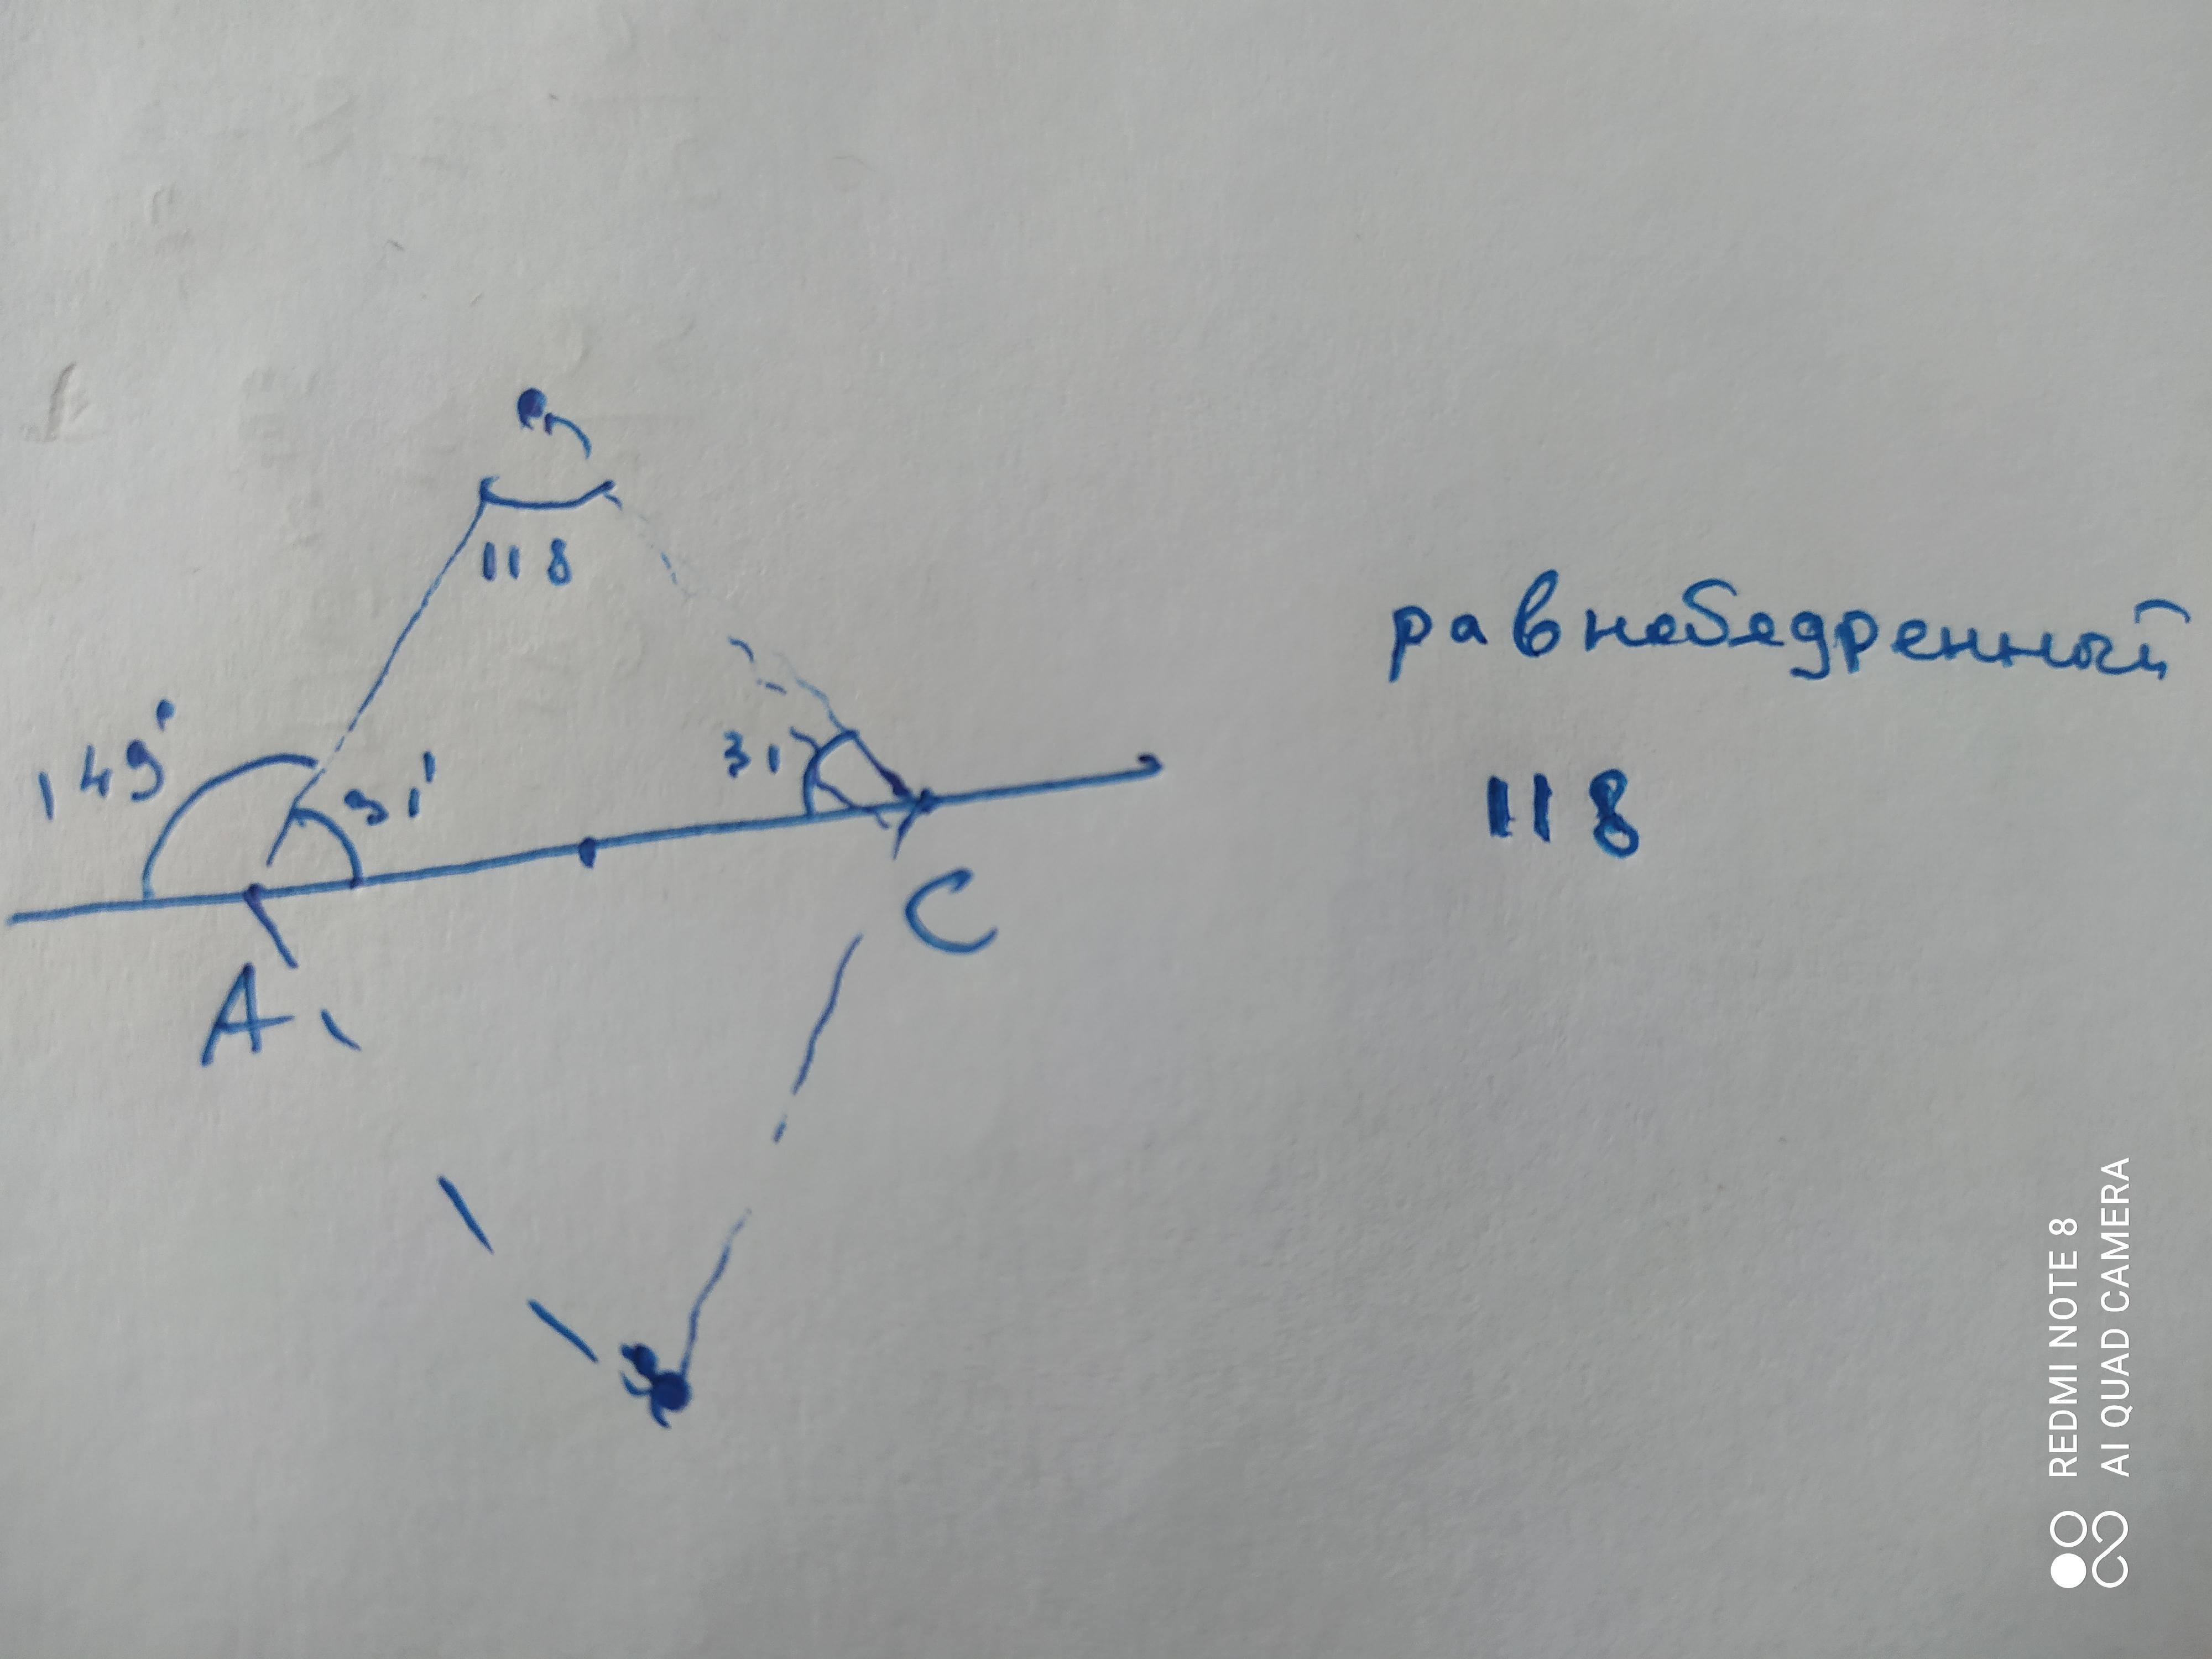 118
равнобедренный
149°
31°
31
118
A
C
REDMI NOTE 8
AI QUAD CAMERA